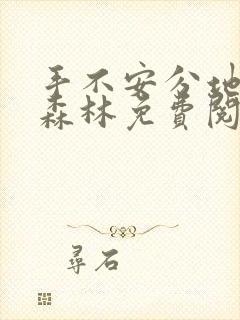 手不安分地
森林免费阅
寻石